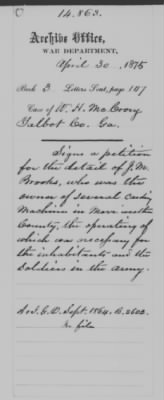 14.863.
Archive Office,
WAR DEPARTMENT,
April 30, 1875
Book 3 Letters Sent, page 107
Case of W. H. McCrory
Talbot Co. Ga.
Signs a petition
for the detail of J. M.
Brooks, who was the
owner of several Carding
Machines in Meriwether
County, the operating of
which was necessary for
the inhabitants and the
soldiers in the army.
A. & I. G. O. Sept. 1864. B. 2603.
In file